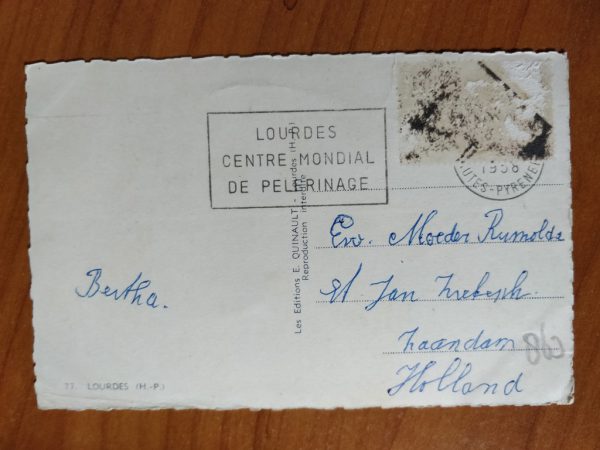 LOURDES
CENTRE MONDIAL
DE PELERINAGE
1958
UTES-PYRENEE
Les Editions E. QUINAULT - Lourdes (H.-P.)
Reproduction interdite
Bertha.
Ew. Moeder Rumolda
St Jan
Zaandam
Holland
77. LOURDES (H.-P.)